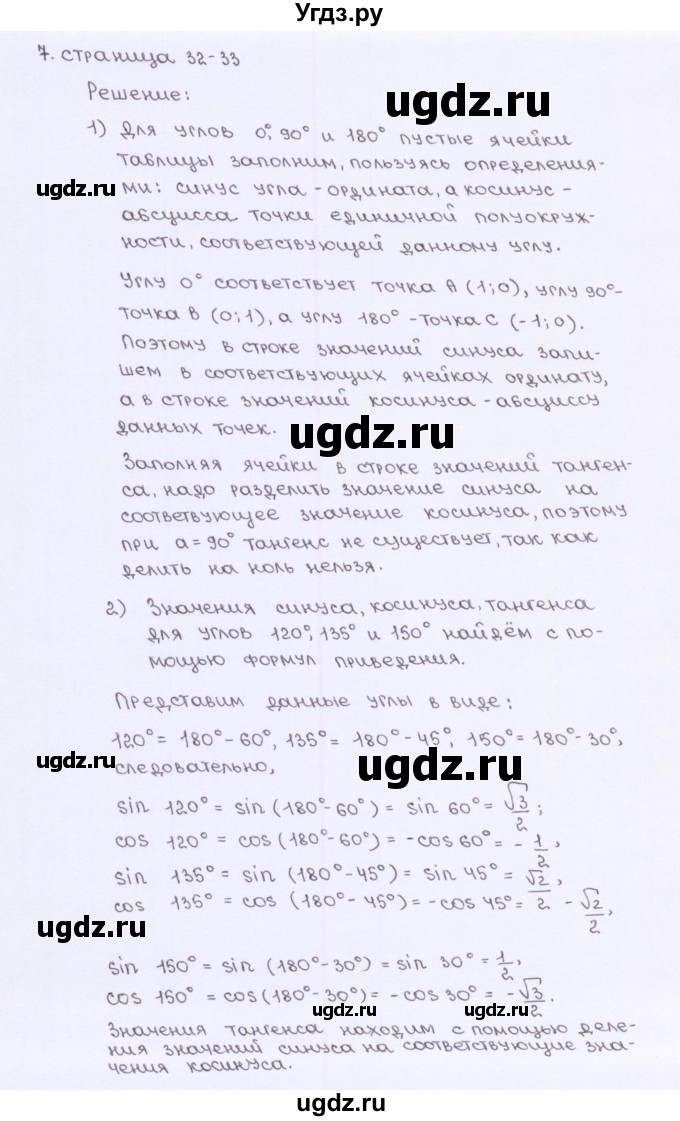 Угдз.ру
7. страница 32-33
Решение:
ugdz.ru
1) Для углов 0°, 90° и 180° пустые ячейки
таблицы заполним, пользуясь определения-
ugdz.ru
ми: синус угла - ордината, а косинус -
абсцисса точки единичной полуокруж-
ности, соответствующей данному углу.
Углу 0° соответствует точка A (1;0), углу 90°-
точка B (0;1), а углу 180° - точка C (-1;0).
ugdz.ru
Поэтому в строке значений синуса запи-
шем в соответствующих ячейках ординату,
а в строке значений косинуса - абсциссу
данных точек.
ugdz.ru
Заполняя ячейки в строке значений танген-
са, надо разделить значение синуса на
соответвующее значение косинуса, поэтому
при a = 90° тангенс не существует, так как
ugdz.ru
делить на ноль нельзя.
2) Значения синуса, косинуса, тангенса
для углов 120°, 135° и 150° найдём с по-
мощью формул приведения.
Представим данные углы в виде:
120° = 180° - 60°, 135° = 180° - 45°, 150° = 180° - 30°,
ugdz.ru
следовательно,
ugdz.ru
sin 120° = sin (180° - 60°) = sin 60° = √3/2;
cos 120° = cos (180° - 60°) = -cos 60° = -1/2,
sin 135° = sin (180° - 45°) = sin 45° = √2/2,
cos 135° = cos (180° - 45°) = -cos 45° = -√2/2,
ugdz.ru
sin 150° = sin (180° - 30°) = sin 30° = 1/2,
cos 150° = cos (180° - 30°) = -cos 30° = -√3/2.
ugdz.ru
ugdz.ru
Значения тангенса находим с помощью деле-
ния значений синуса на соответствующие зна-
чения косинуса.
ugdz.ru